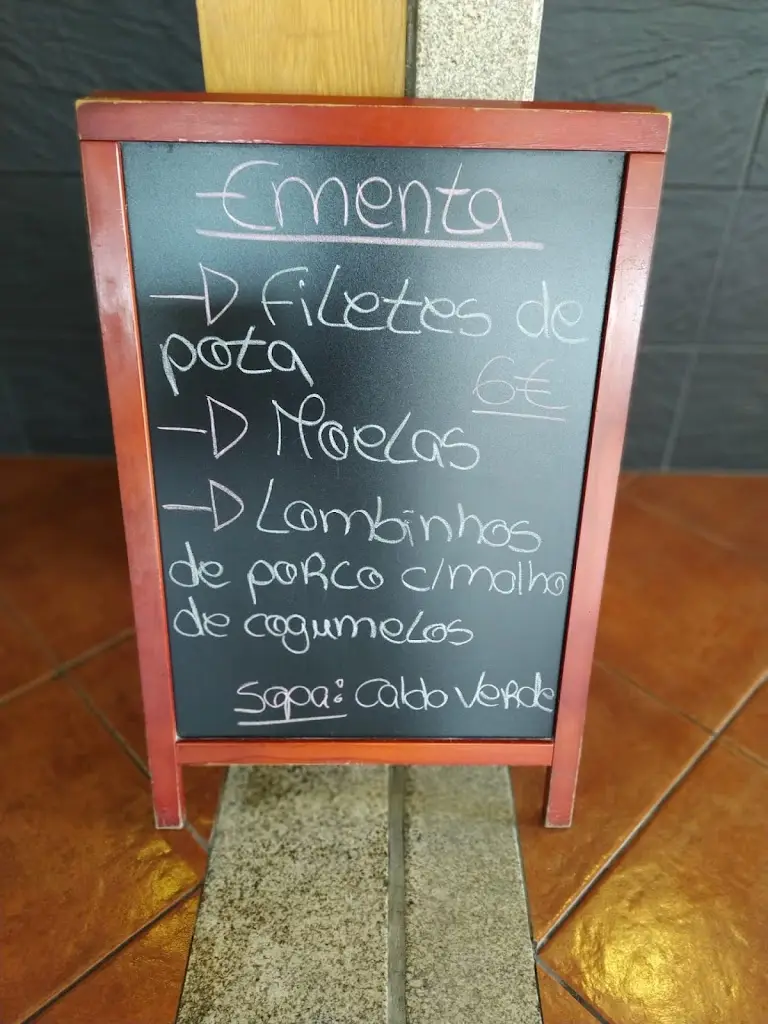 Ementa
→ Filetes de
pota
6€
→ Moelas
→ Lombinhos
de porco c/molho
de cogumelos
Sopa: Caldo Verde